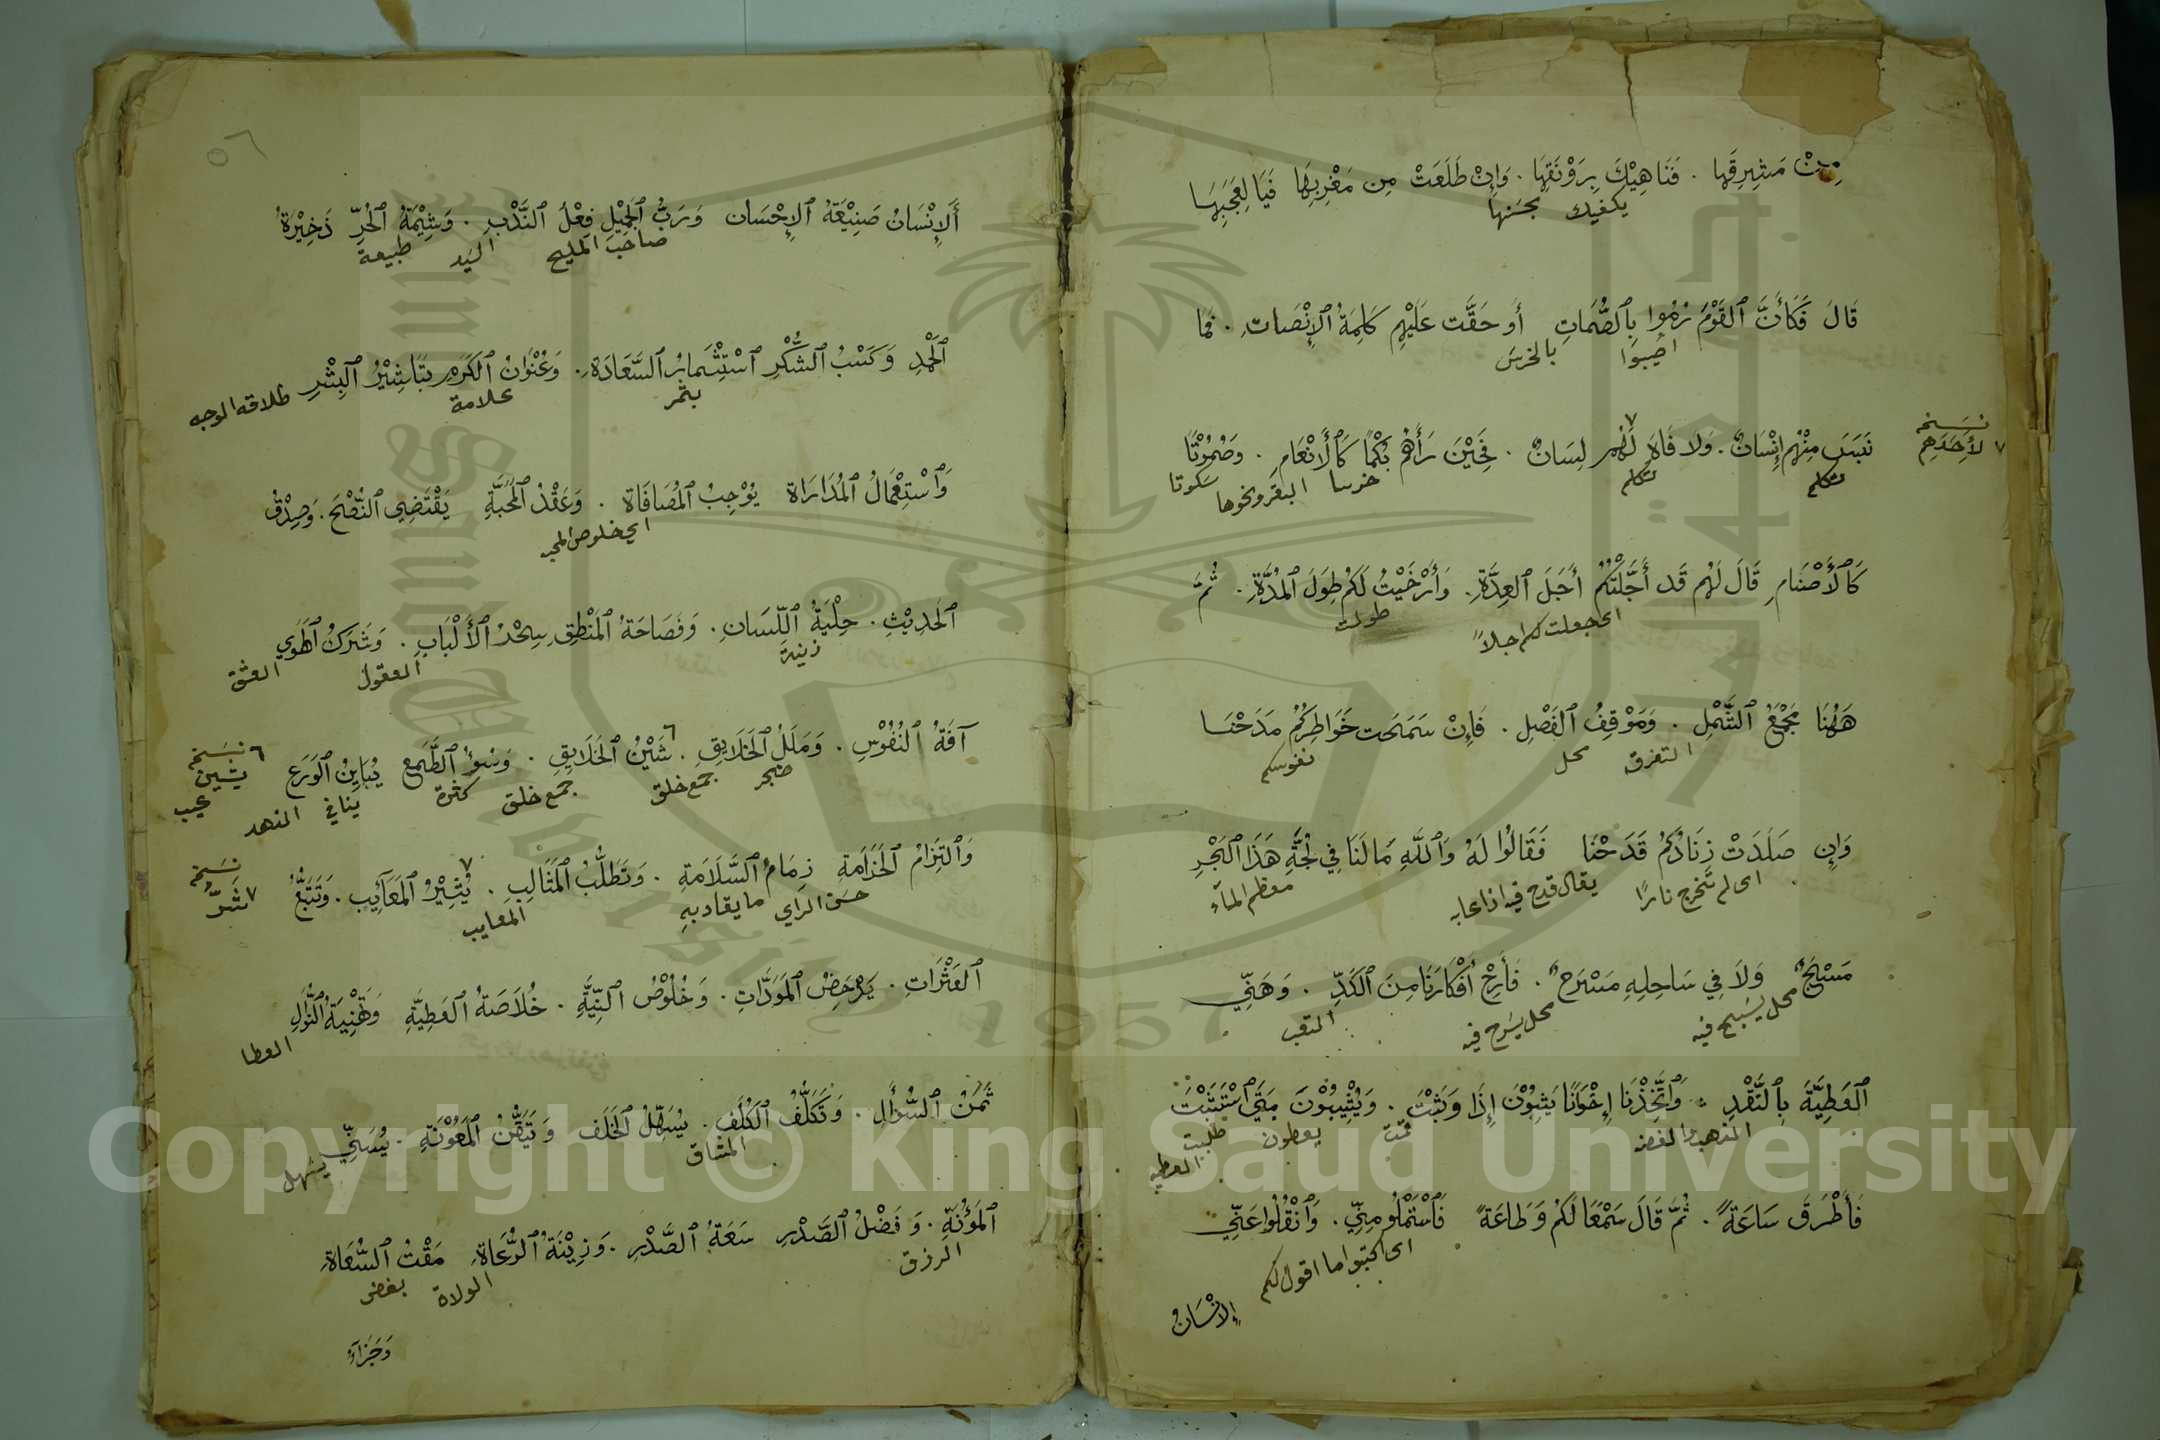 مِنْ مَشْرِقِهَا . فَنَاهِيْكَ بِرَوْنَقِهَا . وَإِنْ طَلَعَتْ مِن مَغْرِبِهَا فَيَا لِعَجَبِهَا
يكفيك بحسنها
قَالَ فَكَأَنَّ ٱلقَوْمَ رُمُوا بِٱلصُّمَاتِ أَو حَقَّت عَلَيْهِم كَلِمَةُ ٱلإِنْصَاتِ . فما
اصيبوا بالخرس
نَبَسَ مِنْهُم إِنْسَانٌ . وَلا فَاهَ لَهُم لِسَانٌ . فَحِيْنَ رَآهُم بُكْمًا كَٱلأَنْعَامِ . وَصُمُوْتًا
نسخه لأَحَدِهِم
تكلم تكلم خرسا البقر ونحوها سكوتا
كَٱلأَصْنَامِ قَالَ لَهُم قَد أَجَّلْتُكُمْ أَجَلَ ٱلعِدَّةِ . وَأَرْخَيْتُ لَكُم طِوَلَ ٱلمُدَّةِ . ثُمَّ
اى جعلت لكم اجلاً طولت
هَهُنَا مَجْمَعُ ٱلشَّمْلِ . وَمَوْقِفُ ٱلفَصْلِ . فَإِنْ سَمَحَت خَوَاطِرُكُمْ مَدَحْنَا
التفرق محل نفوسكم
وَإِن صَلَدَتْ زِنَادُكُم قَدَحْنَا فَقَالُوا لَهُ وَٱللَّهِ مَا لَنَا فِي لُجَّةِ هَذَا ٱلبَحْرِ
اى لم تخرج نارًا يقال قدح فيه اذا عابه معظم المآء
مَسْبَحٌ وَلَا فِي سَاحِلِهِ مَسْرَحٌ . فَأَرِحْ أَفْكَارَنَا مِنَ ٱلكَدِّ . وَهَنِّي
محل يسبح فيه محل يسرح فيه التعب
ٱلعَطِيَّةَ بِٱلنَّقْدِ . وَٱتَّخِذْنَا إِخْوَانًا يَثِبُوْنَ إِذَا وَثَبْتَ . وَيُثِيْبُوْنَ مَتَى ٱسْتَثَبْتَ
الذهب والفضه قمت يعطون طلبت العطيه
فَأَطْرَقَ سَاعَةً . ثُمَّ قَالَ سَمْعًا لَكُم وَطَاعَةً فَٱسْتَمْلُو مِنِّي . وَٱنْقُلُوا عَنِّي
اى اكتبوا ما اقول لكم
الإِنْسَانُ
٥٦
أَلإِنْسَانُ صَنِيْعَةُ ٱلإِحْسَانِ وَرَبُّ ٱلجَمِيْلِ فِعْلُ ٱلنَّدْبِ . وَشِيْمَةُ ٱلحُرِّ ذَخِيْرَةُ
صاحب المليح السيد طبيعة
ٱلحَمْدِ وَكَسْبُ ٱلشُّكْرِ ٱسْتِثْمَارُ ٱلسَّعَادَةِ . وَعُنْوَانُ ٱلكَرَمِ تَبَاشِيْرُ ٱلبِشْرِ
يثمر علامة طلاقه الوجه
وَٱسْتِعْمَالُ ٱلمُدَارَاةِ يُوْجِبُ ٱلمُصَافَاةَ . وَعَقْدُ ٱلمَحَبَّةِ يَقْتَضِي ٱلنُّصْحَ . وَصِدْقُ
اي خلوص المحبه
ٱلحَدِيْثِ . حِلْيَةُ ٱللِّسَانِ . وَفَصَاحَةُ ٱلمَنْطِقِ سِحْرُ ٱلأَلْبَابِ . وَشَرَكُ ٱلهَوَي
زينة العقول العشق
آفَةُ ٱلنُفُوْسِ . وَمَلَلُ ٱلخَلَايِقِ . شَيْنُ ٱلخَلَايِقِ . وَسُوْءُ ٱلطَّمَعِ يُبَايِنُ ٱلوَرَعَ
نسخه يشين
ضجر جمع خلق جمع خلق كثرة ينافي الزهد عيب
وَٱلتِزَامُ ٱلحَزَامَةِ زِمَامُ ٱلسَّلَامَةِ . وَتَطَلُّبُ ٱلمَثَالِبِ . يُثِيْرُ ٱلمَعَآئِبَ . وَتَتَبُّعُ
نسخه شَرُّ
حسن الراي ما يقاد به المعايب
ٱلعَثْرَاتِ . يُدْحِضُ ٱلمَوَدَّاتِ . وَخُلُوْصُ ٱلنِّيَّةِ . خُلَاصَةُ ٱلعَطِيَّةِ وَتَهْنِيَةُ ٱلنَّوَالِ
العطا
ثَمَنُ ٱلسُّؤَالِ . وَتَكَلُّفُ ٱلكُلَفِ . يُسَهِّلُ ٱلخَلَفَ وَتَيَقُّنُ ٱلمَعُوْنَةِ . يُسَنِّي
المشاق يسهل
ٱلمَؤُنَةِ . وَفَضْلُ ٱلصَّدْرِ سَعَةُ ٱلصَّدْرِ . وَزِيْنَةُ ٱلرُّعَاةِ مَقْتُ ٱلسُّعَاةِ
الرزق الولاة بغض
وَجَزَآءُ
Copyright © King Saud University
1957